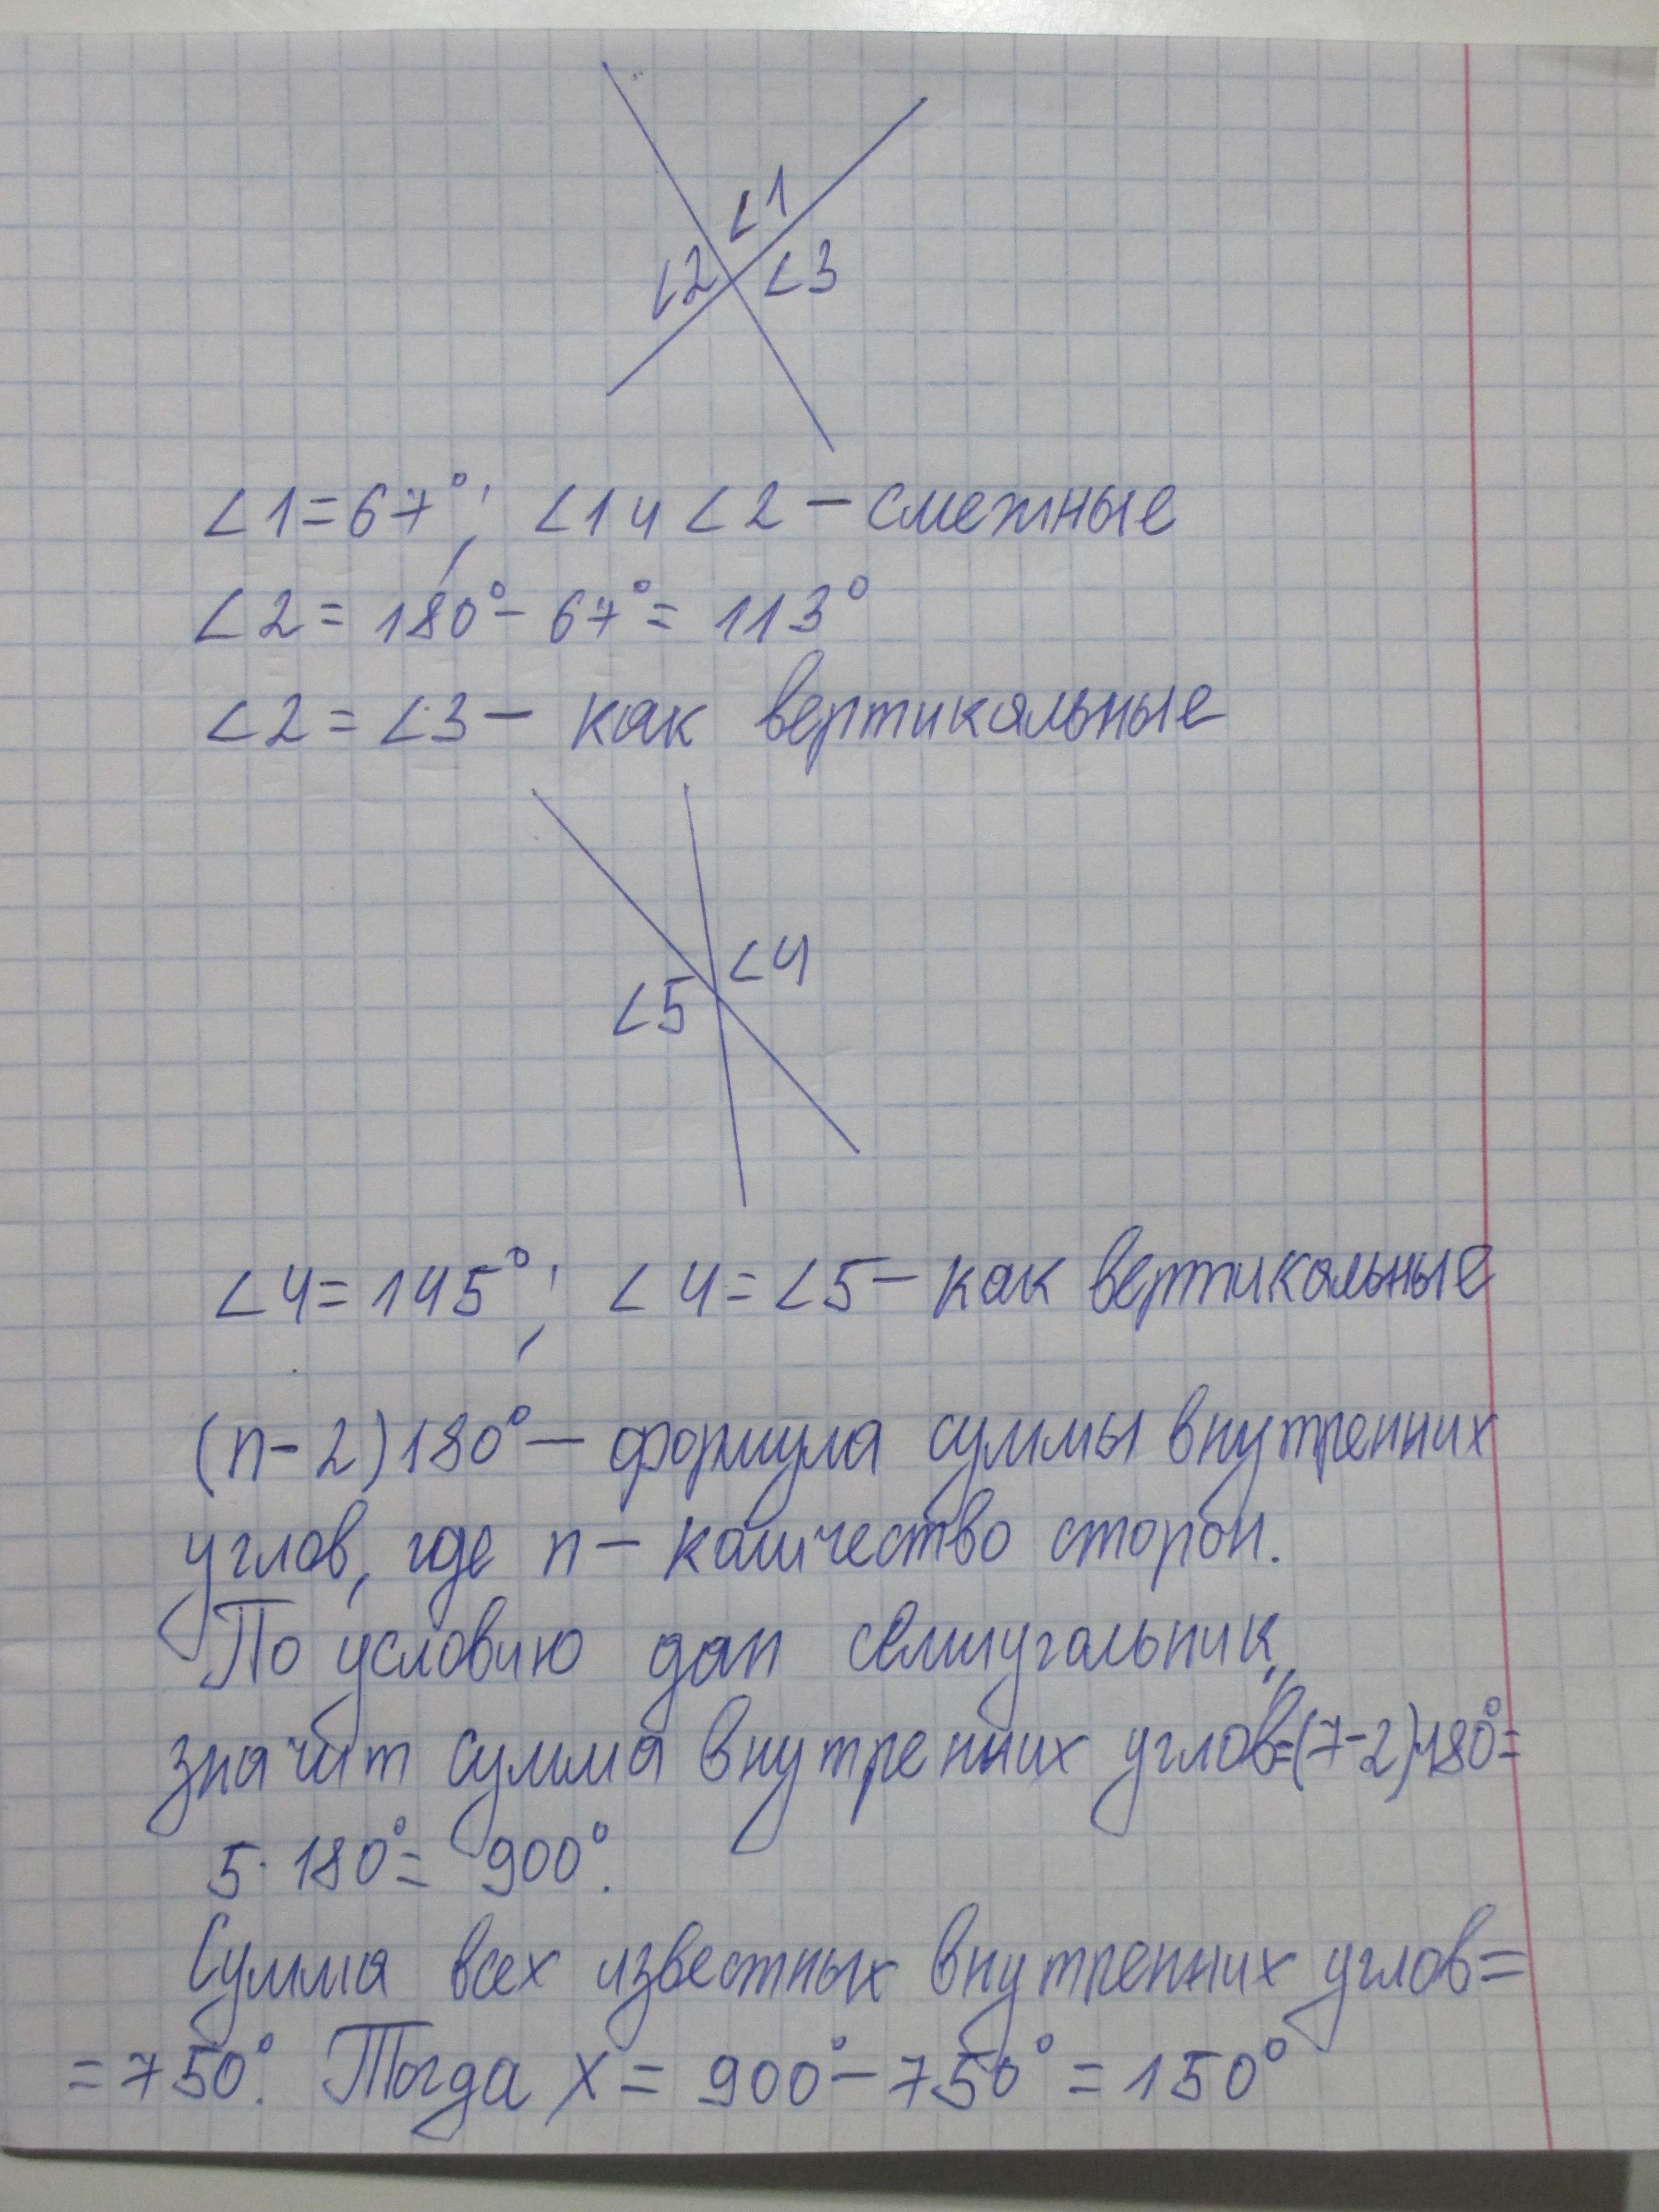 ∠1
∠2 ∠3
∠1=67°; ∠1 и ∠2 – смежные
∠2 = 180° - 67° = 113°
∠2 = ∠3 – как вертикальные
∠4
∠5
∠4 = 145°; ∠4 = ∠5 – как вертикальные
(n-2)180° – формула суммы внутренних
углов, где n – количество сторон.
По условию дан семиугольник,
значит сумма внутренних углов=(7-2)·180°=
5·180°= 900°.
Сумма всех известных внутренних углов=
=750°. Тогда x = 900° - 750° = 150°